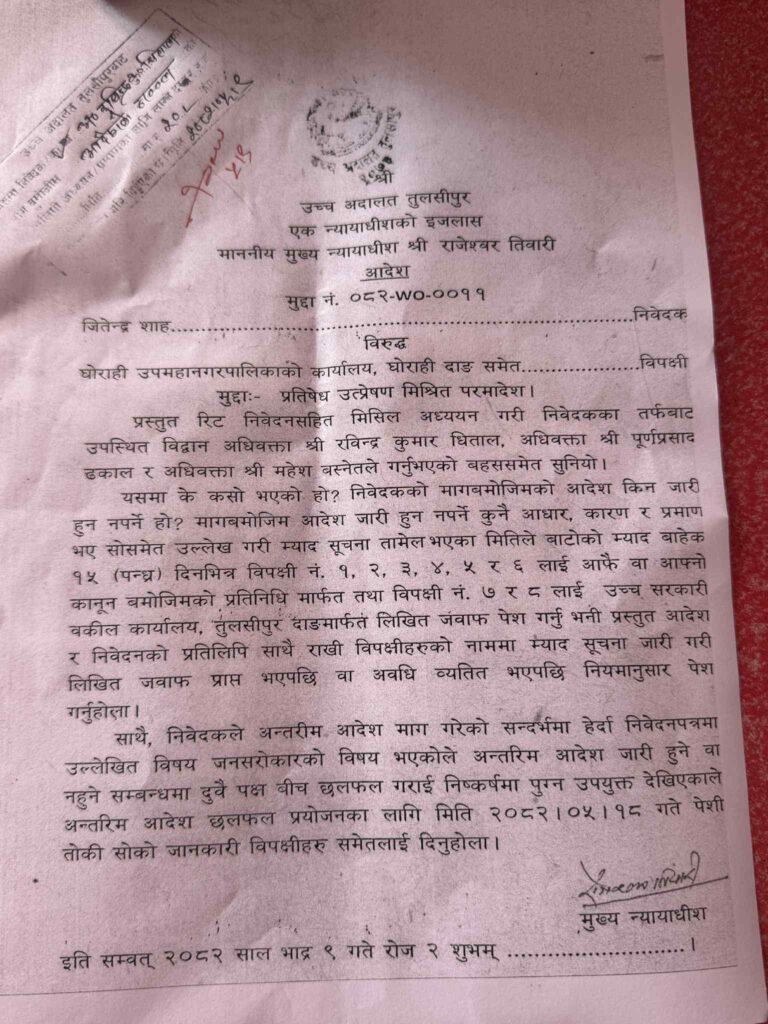 उच्च अदालत तुलसीपुर
श्री
उच्च अदालत तुलसीपुर
एक न्यायाधीशको इजलास
माननीय मुख्य न्यायाधीश श्री राजेश्वर तिवारी
आदेश
मुद्दा नं. ०८२-WO-००११
जितेन्द्र शाह..........................................................................निवेदक
विरुद्ध
घोराही उपमहानगरपालिकाको कार्यालय, घोराही दाङ समेत....................विपक्षी
मुद्दाः- प्रतिषेध उत्प्रेषण मिश्रित परमादेश।
प्रस्तुत रिट निवेदनसहित मिसिल अध्ययन गरी निवेदकका तर्फबाट
उपस्थित विद्वान अधिवक्ता श्री रविन्द्र कुमार धिताल, अधिवक्ता श्री पूर्णप्रसाद
ढकाल र अधिवक्ता श्री महेश बस्नेतले गर्नुभएको बहससमेत सुनियो।
यसमा के कसो भएको हो? निवेदकको मागबमोजिमको आदेश किन जारी
हुन नपर्ने हो? मागबमोजिम आदेश जारी हुन नपर्ने कुनै आधार, कारण र प्रमाण
भए सोसमेत उल्लेख गरी म्याद सूचना तामेल भएका मितिले बाटोको म्याद बाहेक
१५ (पन्ध्र) दिनभित्र विपक्षी नं. १, २, ३, ४, ५ र ६ लाई आफै वा आफ्नो
कानून बमोजिमको प्रतिनिधि मार्फत तथा विपक्षी नं. ७ र ८ लाई उच्च सरकारी
वकील कार्यालय, तुलसीपुर दाङमार्फत लिखित जवाफ पेश गर्नु भनी प्रस्तुत आदेश
र निवेदनको प्रतिलिपि साथै राखी विपक्षीहरुको नाममा म्याद सूचना जारी गरी
लिखित जवाफ प्राप्त भएपछि वा अवधि व्यतित भएपछि नियमानुसार पेश
गर्नुहोला।
साथै, निवेदकले अन्तरीम आदेश माग गरेको सन्दर्भमा हेर्दा निवेदनपत्रमा
उल्लेखित विषय जनसरोकारको विषय भएकोले अन्तरिम आदेश जारी हुने वा
नहुने सम्बन्धमा दुवै पक्ष वीच छलफल गराई निष्कर्षमा पुग्न उपयुक्त देखिएकाले
अन्तरिम आदेश छलफल प्रयोजनका लागि मिति २०८२।०५।१८ गते पेशी
तोकी सोको जानकारी विपक्षीहरु समेतलाई दिनुहोला।
मुख्य न्यायाधीश
इति सम्वत् २०८२ साल भाद्र ९ गते रोज २ शुभम् ..........................।